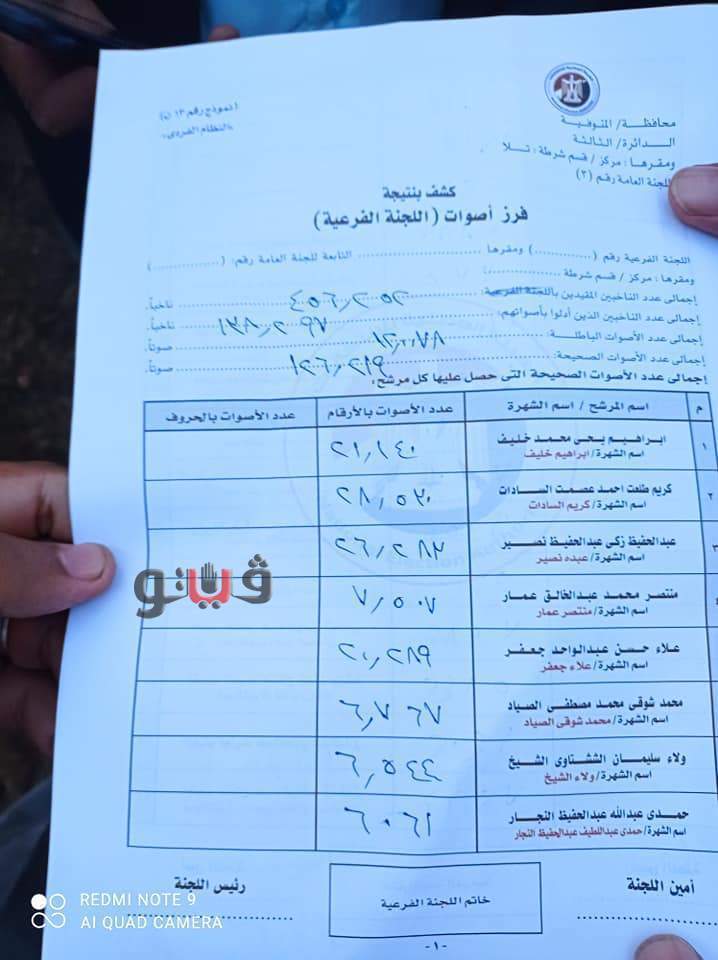 (نموذج رقم ١٣ ن)
«النظام الفردى»
محافظة/ المنوفية
الدائرة/ الثالثة
ومقرها: مركز / قسم شرطة: تلا
اللجنة العامة رقم (٢)
كشف بنتيجة
فرز أصوات (اللجنة الفرعية)
اللجنة الفرعية رقم (............) ومقرها ............ التابعة للجنة العامة رقم: (............)
ومقرها: مركز / قسم شرطة ............
إجمالى عدد الناخبين المقيدين باللجنة الفرعية: ٤٥٦,٢٥٢ ناخباً.
إجمالى عدد الناخبين الذين أدلوا بأصواتهم: ١٣٨,٢٩٧ ناخباً.
إجمالى عدد الأصوات الباطلة: ١٢,٠٧٨ صوتاً.
إجمالى عدد الأصوات الصحيحة: ١٢٦,٢١٩ صوتاً.
إجمالى عدد الأصوات الصحيحة التى حصل عليها كل مرشح:
م اسم المرشح / اسم الشهرة عدد الأصوات بالأرقام عدد الأصوات بالحروف
١ ابراهيم يحى محمد خليف ٢١,١٤٠
اسم الشهرة/ ابراهيم خليف
٢ كريم طلعت احمد عصمت السادات ٢٨,٥٢٠
اسم الشهرة/ كريم السادات
٣ عبدالحفيظ زكى عبدالحفيظ نصير ٢٦,٢٨٢
اسم الشهرة/ عبده نصير
٤ منتصر محمد عبدالخالق عمار ٧,٥٠٧
اسم الشهرة/ منتصر عمار
علاء حسن عبدالواحد جعفر ٢٠,٢٨٩
اسم الشهرة/ علاء جعفر
محمد شوقى محمد مصطفى الصياد ٦,٧٦٧
اسم الشهرة/ محمد شوقى الصياد
ولاء سليمان الششتاوى الشيخ ٦,٥٤٤
اسم الشهرة/ ولاء الشيخ
حمدى عبدالله عبدالحفيظ النجار ٦٠٦١
اسم الشهرة/ حمدى عبداللطيف عبدالحفيظ النجار
أمين اللجنة
خاتم اللجنة الفرعية
رئيس اللجنة
-١-
ڤيتو
REDMI NOTE 9
AI QUAD CAMERA